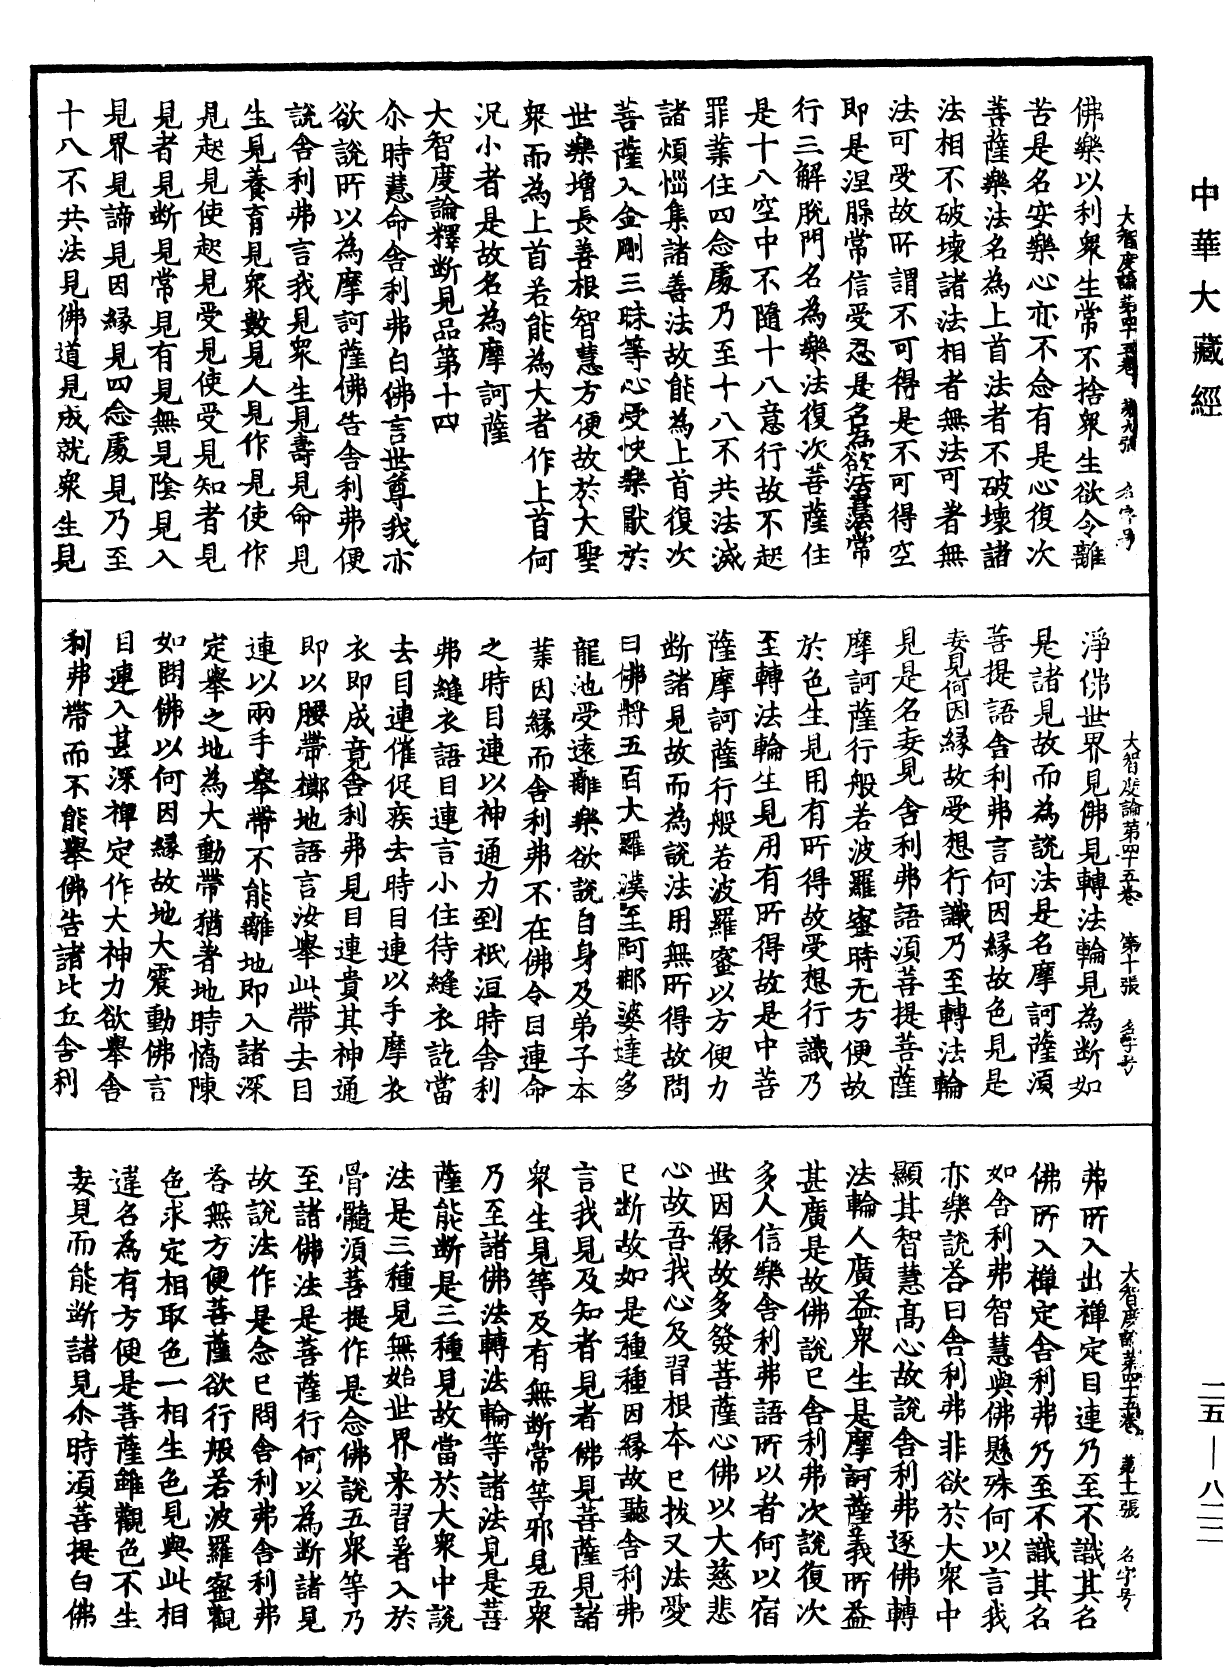 中華大藏經
大智度論第四十五卷　第九張　名字号
佛樂以利衆生常不捨衆生欲令離
苦是名安樂心亦不念有是心復次
菩薩樂法名為上首法者不破壞諸
法相不破壞諸法相者無法可著無
法可受故所謂不可得是不可得空
即是涅槃常信受忍是名為欲法喜法常
行三解脫門名為樂法復次菩薩住
是十八空中不隨十八意行故不起
罪業住四念處乃至十八不共法滅
諸煩惱集諸善法故能為上首復次
菩薩入金剛三昧等心受快樂厭於
世樂增長善根智慧方便故於大聖
衆而為上首若能為大者作上首何
況小者是故名為摩訶薩
大智度論釋斷見品第十四
尒時慧命舍利弗白佛言世尊我亦
欲說所以為摩訶薩佛告舍利弗便
說舍利弗言我見衆生見壽見命見
生見養育見衆數見人見作見使作
見起見使起見受見使受見知者見
見者見斷見常見有見無見陰見入
見界見諦見因緣見四念處見乃至
十八不共法見佛道見成就衆生見
大智度論第四十五卷　第十張　名字号
淨佛世界見佛見轉法輪見為斷如
是諸見故而為說法是名摩訶薩須
菩提語舍利弗言何因緣故色見是
妄見何因緣故受想行識乃至轉法輪
見是名妄見舍利弗語須菩提菩薩
摩訶薩行般若波羅蜜時无方便故
於色生見用有所得故受想行識乃
至轉法輪生見用有所得故是中菩
薩摩訶薩行般若波羅蜜以方便力
斷諸見故而為說法用無所得故問
曰佛將五百大羅漢至阿耨婆達多
龍池受遠離樂欲說自身及弟子本
業因緣而舍利弗不在佛令目連命
之時目連以神通力到祇洹時舍利
弗縫衣語目連言小住待縫衣訖當
去目連催促疾去時目連以手摩衣
衣即成竟舍利弗見目連貴其神通
即以腰帶擲地語言汝舉此帶去目
連以兩手舉帶不能離地即入諸深
定舉之地為大動帶猶著地時憍陳
如問佛以何因緣故地大震動佛言
目連入甚深禪定作大神力欲舉舍
利弗帶而不能舉佛告諸比丘舍利
大智度論第四十五卷　第十一張　名字号
弗所入出禪定目連乃至不識其名
佛所入禪定舍利弗乃至不識其名
如舍利弗智慧與佛懸殊何以言我
亦樂說荅曰舍利弗非欲於大衆中
顯其智慧高心故說舍利弗逐佛轉
法輪人廣益衆生是摩訶薩義所益
甚廣是故佛說已舍利弗次說復次
多人信樂舍利弗語所以者何以宿
世因緣故多發菩薩心佛以大慈悲
心故吾我心及習根本已拔又法愛
已斷故如是種種因緣故聽舍利弗
言我見及知者見者佛見菩薩見諸
衆生見等及有無斷常等邪見五衆
乃至諸佛法轉法輪等諸法見是菩
薩能斷是三種見故當於大衆中說
法是三種見無始世界来習著入於
骨髓須菩提作是念佛說五衆等乃
至諸佛法是菩薩行何以為斷諸見
故說法作是念已問舍利弗舍利弗
荅無方便菩薩欲行般若波羅蜜觀
色求定相取色一相生色見與此相
違名為有方便是菩薩雖觀色不生
妄見而能斷諸見尒時須菩提白佛
二五—八二二